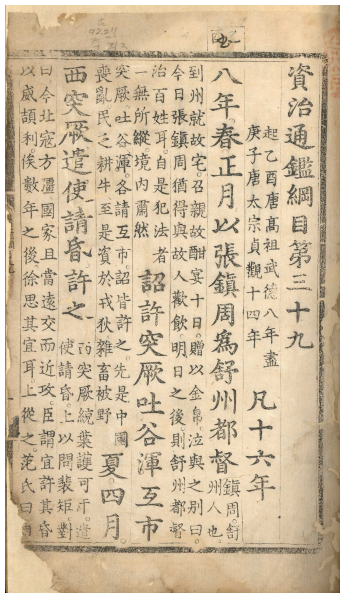 資治通鑑綱目第三十九
起乙酉唐高祖武德八年盡
庚子唐太宗貞觀十四年
凡十六年
八年春正月以張鎮周爲舒州都督
鎮周舒
州人也
到州就故宅召親故酣宴十日贈以金帛泣與之别曰
今日張鎮周猶得與故人歡飲明日之後則舒州都督
治百姓耳自是犯法者
一無所縱境内肅然
詔許突厥吐谷渾互市
突厥吐谷渾各請互市詔皆許之先是中國
喪亂民乏耕牛至是資於戎狄雜畜被野
夏四月
西突厥遣使請昏許之
西突厥統葉護可汗遣
使請昏上以問裴矩對
曰今北寇方彊國家且當遠交而近攻臣謂宜許其昏
以威頡利俟數年之後徐思其宜耳上從之范氏曰